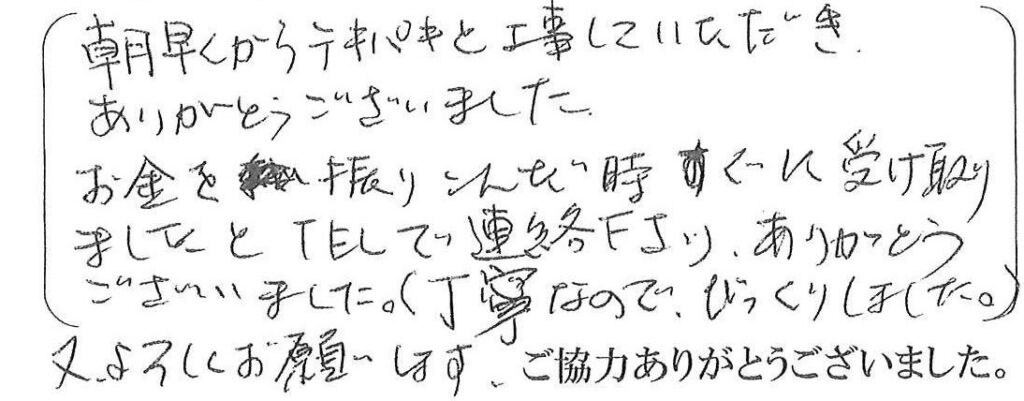 朝早くからテキパキと工事していただき、
ありがとうございました。
お金を振りこんだ時すぐに受け取り
ましたとTELでご連絡下さり、ありがとう
ございました。(丁寧なので、びっくりしました。)
又、よろしくお願いします。ご協力ありがとうございました。